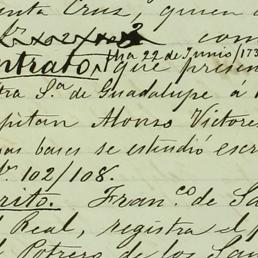 nta Cruz, quien
com
ntrato. (Una 22 de Junio/173
que presen
tra Sa. de Guadalupe a
apitan Alonso Victores
yas bases se estendió escr
Nº. 102/108.
rito. Franco. de Sa
l Real, registra el p
l Potrero de los San